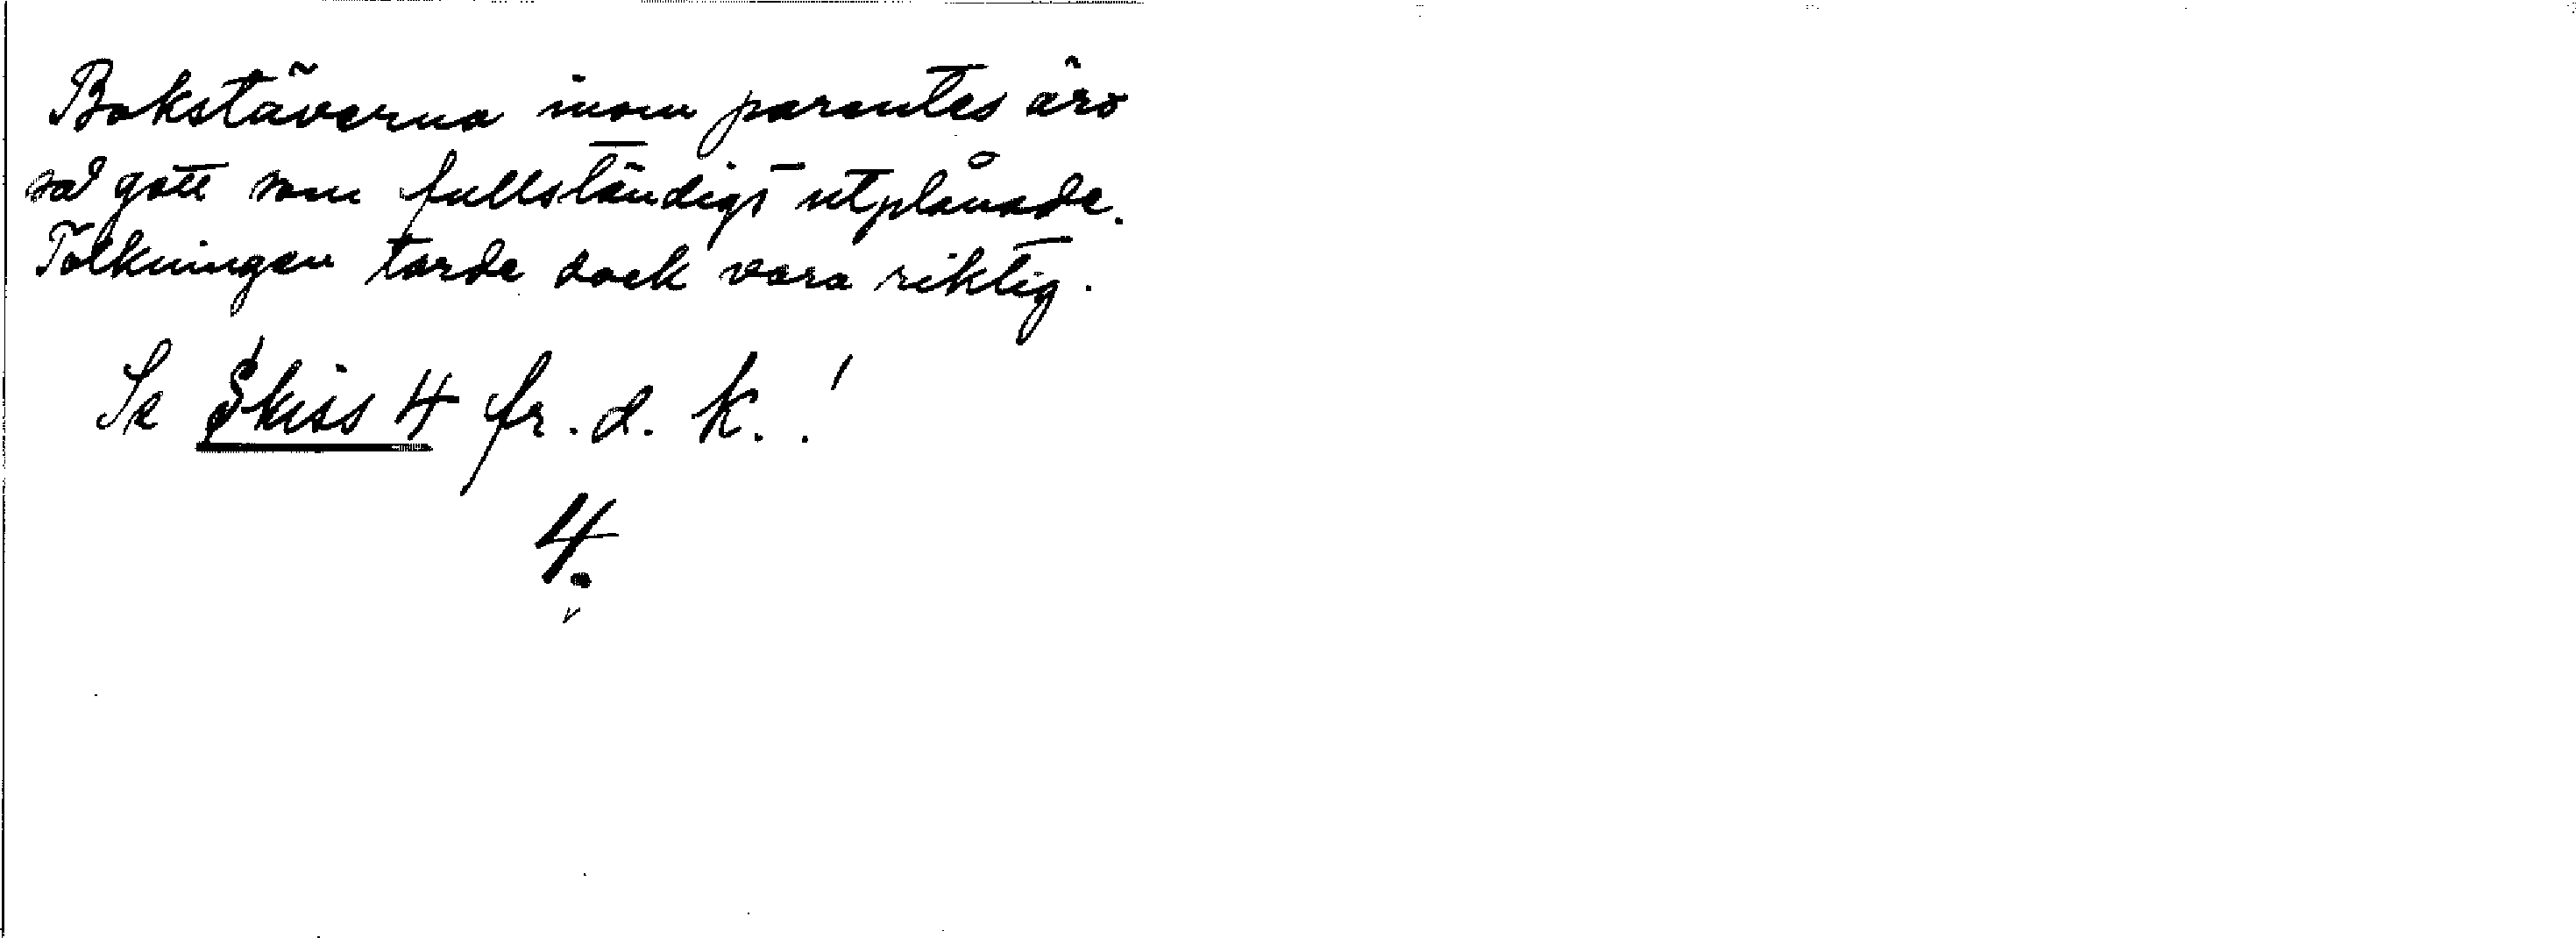 Bokstäverna inom parentes äro
så gott som fullständigt utplånade.
Tolkningen torde dock vara riktig.
Se Skiss 4 fr. d. k.!
4.